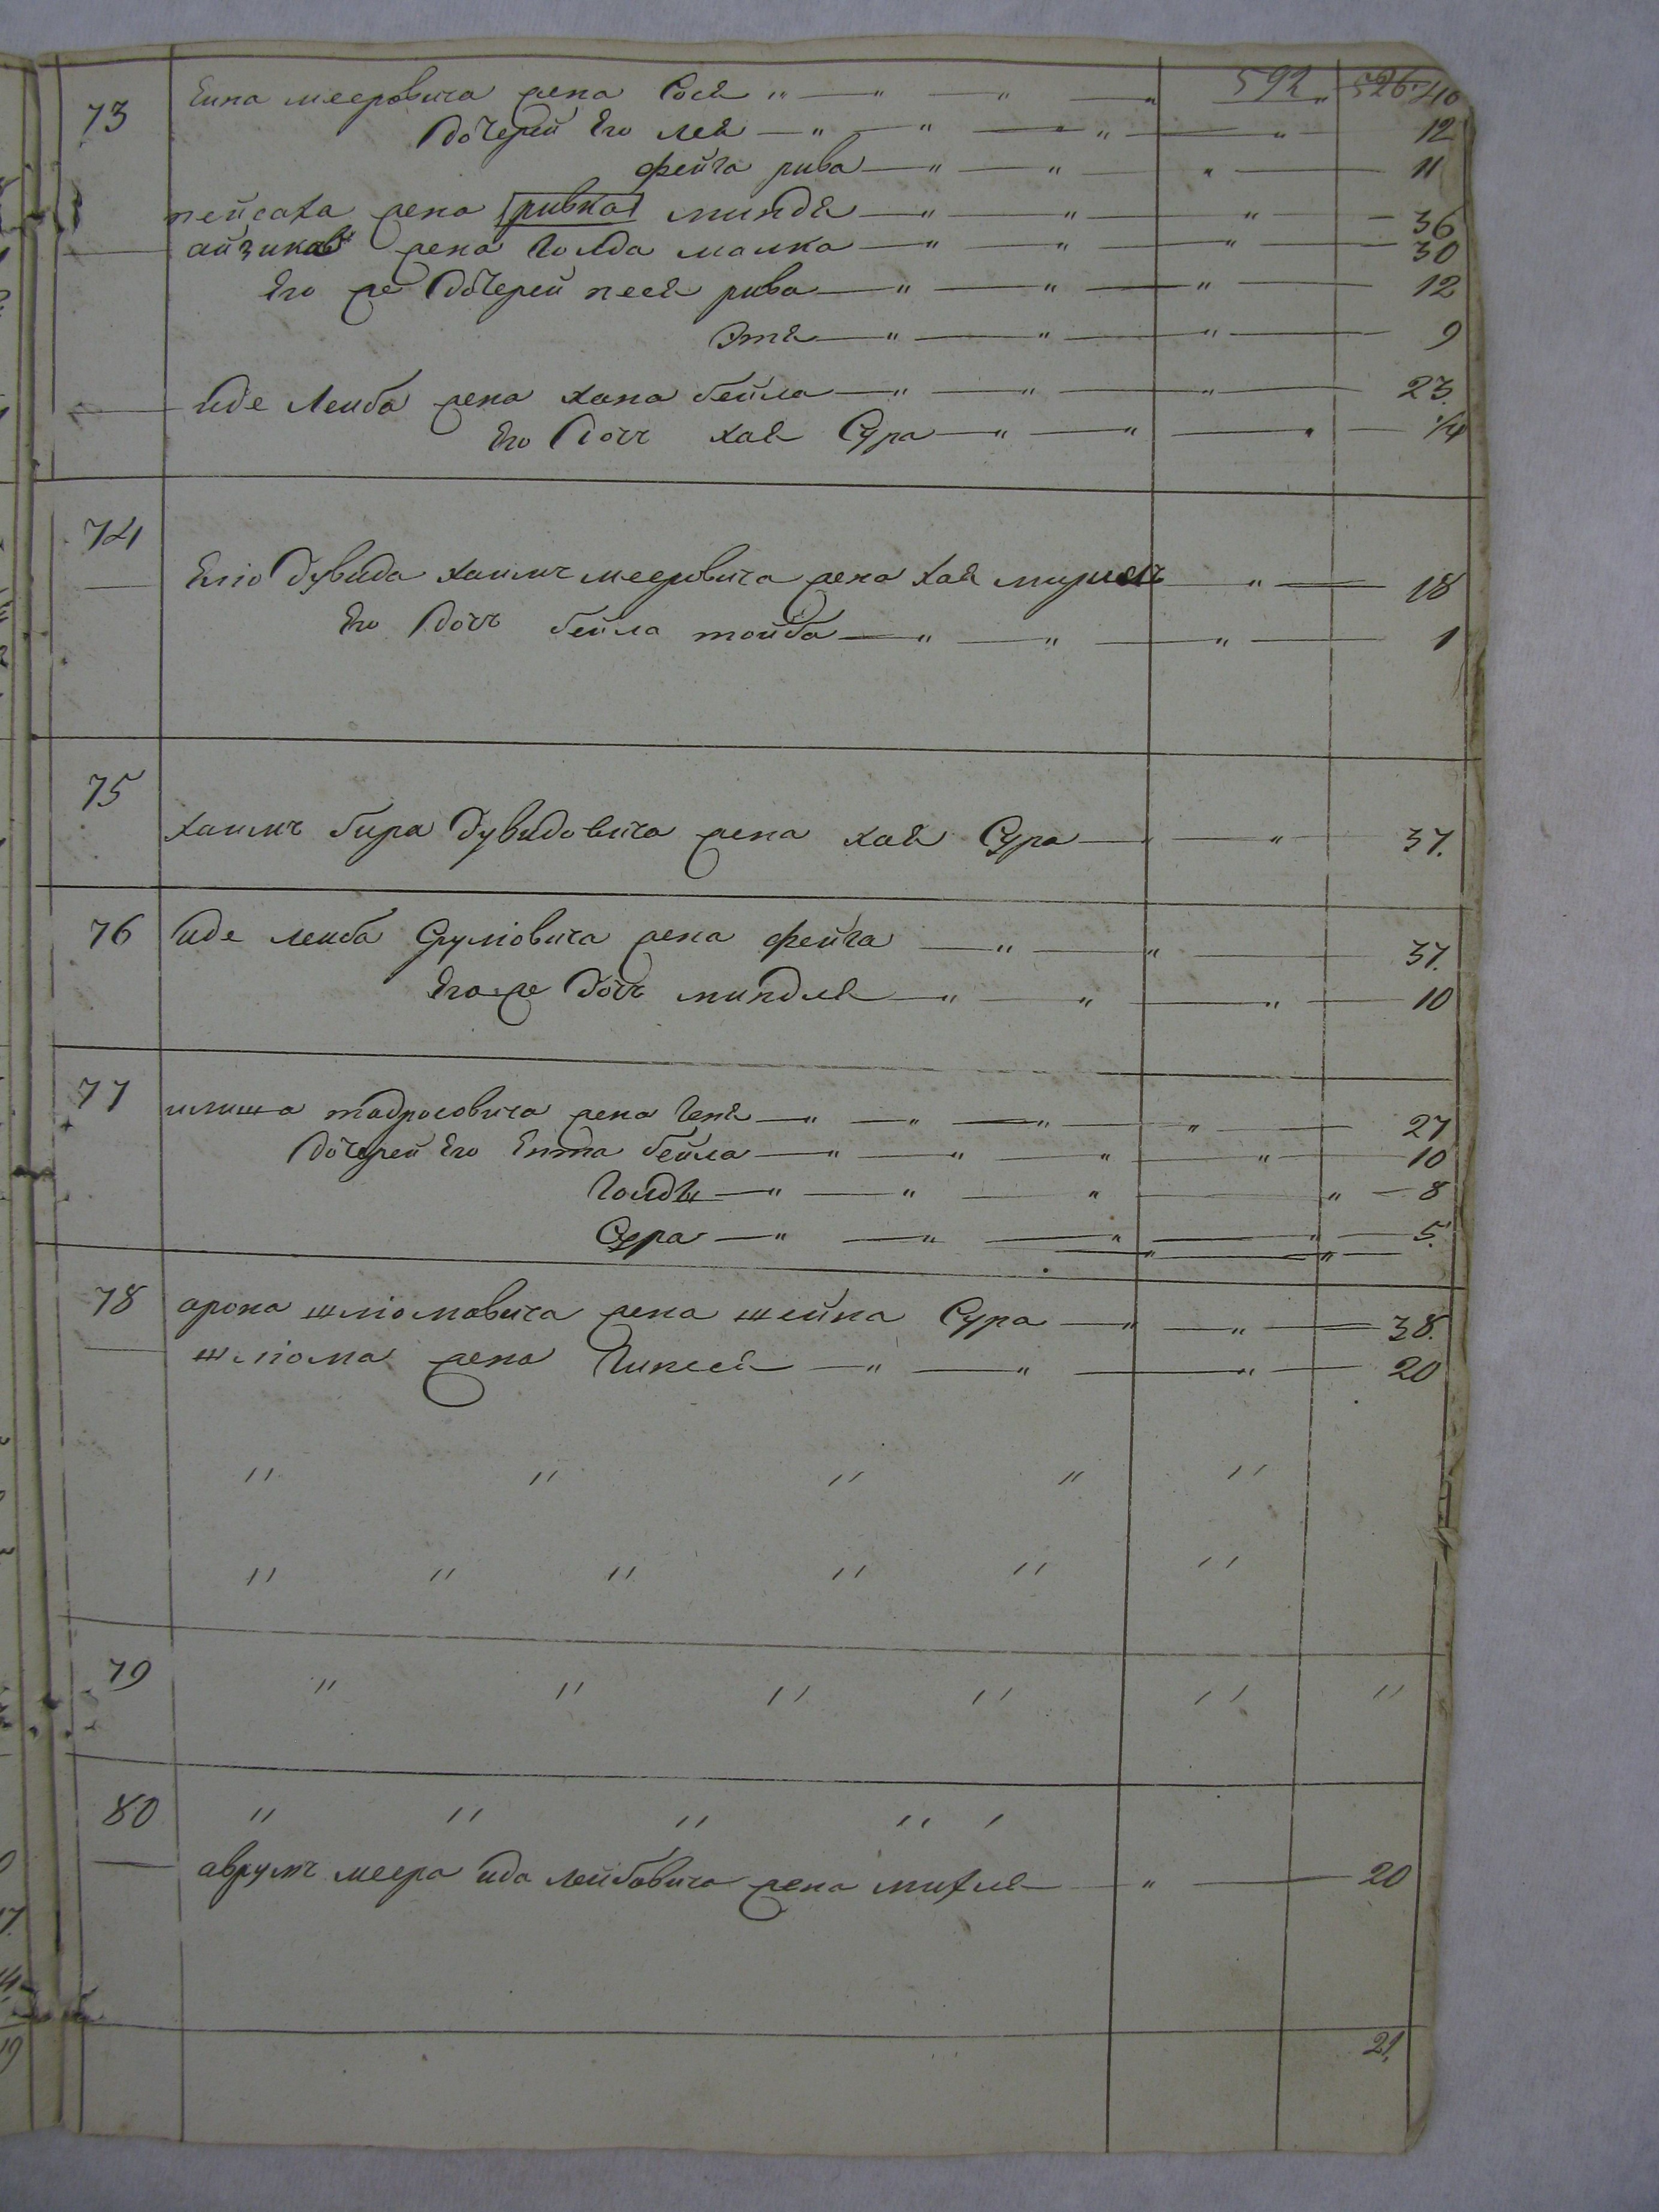 592 526
73 Еина мееровича жена Сося 40
дочерей Его лея 12
фейга рива 11
пейсаха жена [ривка] миндя 36
айзикова жена голда малка 30
Его же дочерей песя рива 12
Этя 9
иде Лейба жена хана бейла 23.
Его дочь хая Сура 1/4
74
Елiо дувида хаимъ мееровича жена хая 18
Его дочь бейла тойба 1
75
хаимъ бира дувидовича жена хая Сура 37.
76 иде лейба Срулiовича жена фейга 37.
Егоже дочь миндля 10
77 тодросовича жена геня 27
дочерей Его Ента бейла 10
голда 8
Сура 5.
78 арона шлiомовича жена шейна Сура 38.
шлiома жена 20
" " " " "
" " " " " "
79 " " " " " "
80 " " " " '
аврумъ меера ида лейбовича жена михля 20
21.